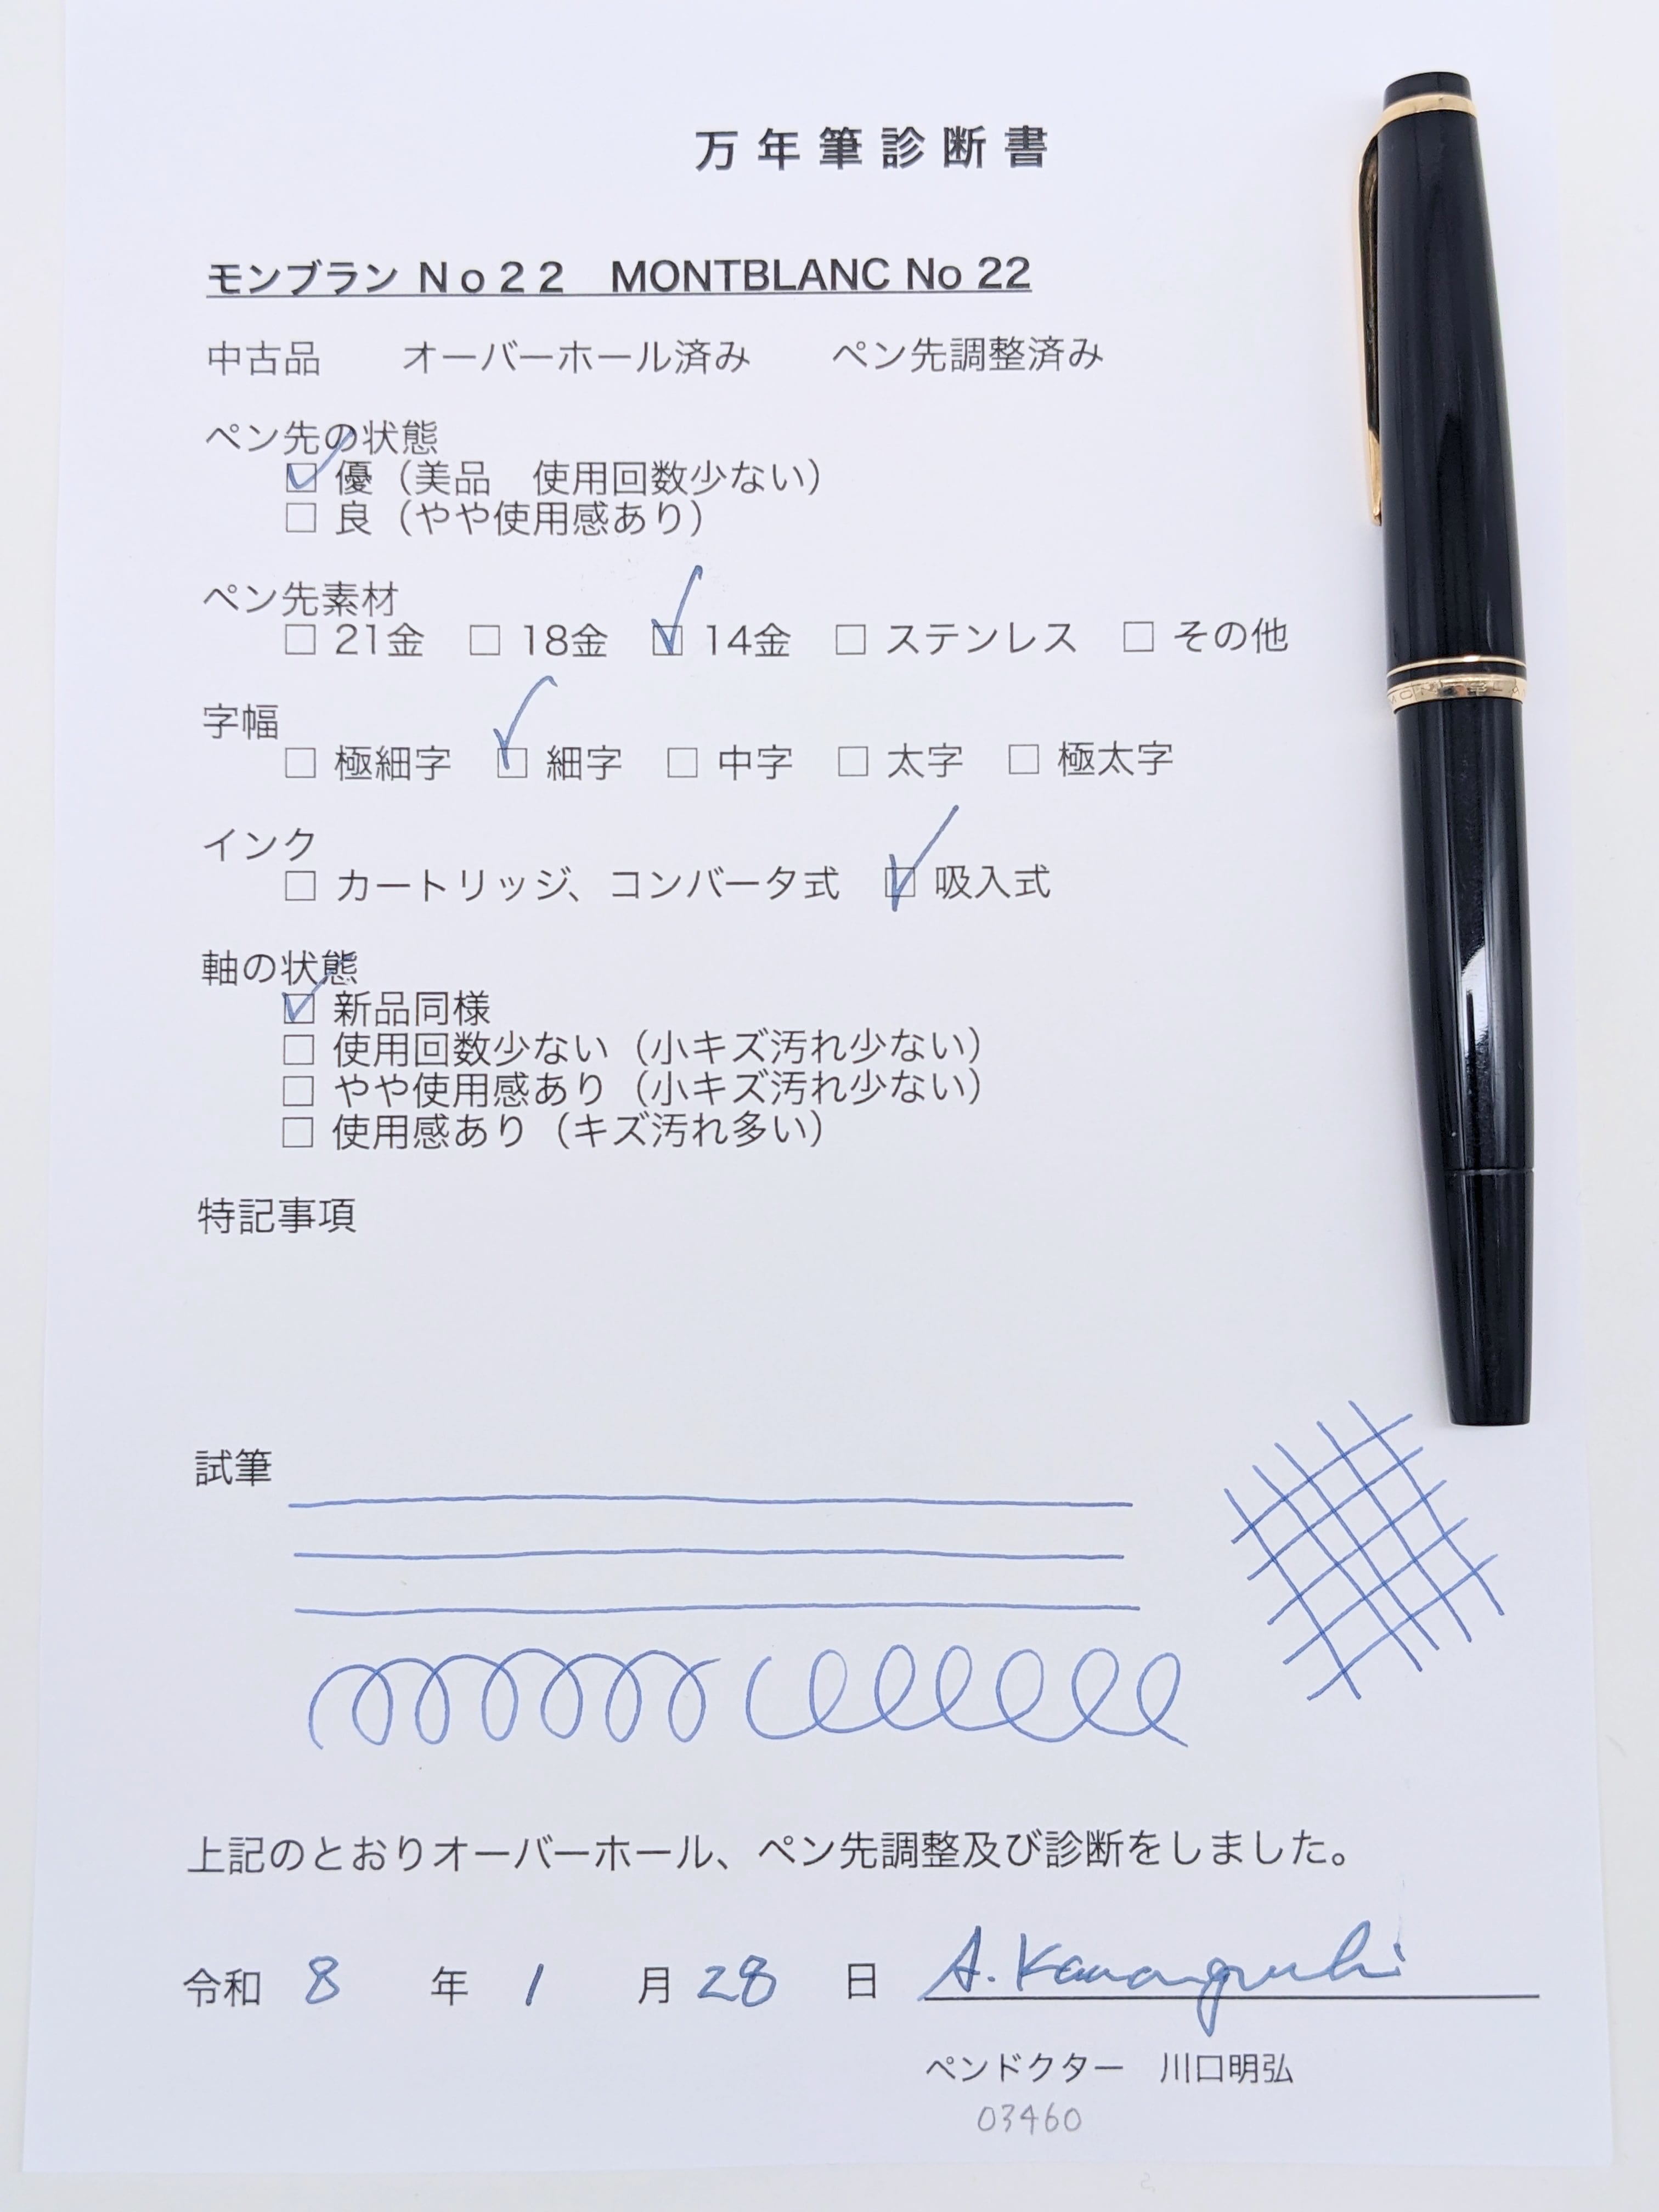 万年筆診断書
モンブラン Ｎｏ２２　MONTBLANC No 22
中古品　　オーバーホール済み　　ペン先調整済み
ペン先の状態
☑ 優（美品　使用回数少ない）
□ 良（やや使用感あり）
ペン先素材
□ 21金　□ 18金　☑ 14金　□ ステンレス　□ その他
字幅
□ 極細字　☑ 細字　□ 中字　□ 太字　□ 極太字
インク
□ カートリッジ、コンバータ式　☑ 吸入式
軸の状態
☑ 新品同様
□ 使用回数少ない（小キズ汚れ少ない）
□ やや使用感あり（小キズ汚れ少ない）
□ 使用感あり（キズ汚れ多い）
特記事項
試筆
上記のとおりオーバーホール、ペン先調整及び診断をしました。
令和 8 年 1 月 28 日 A. Kawaguchi
ペンドクター　川口明弘
03460